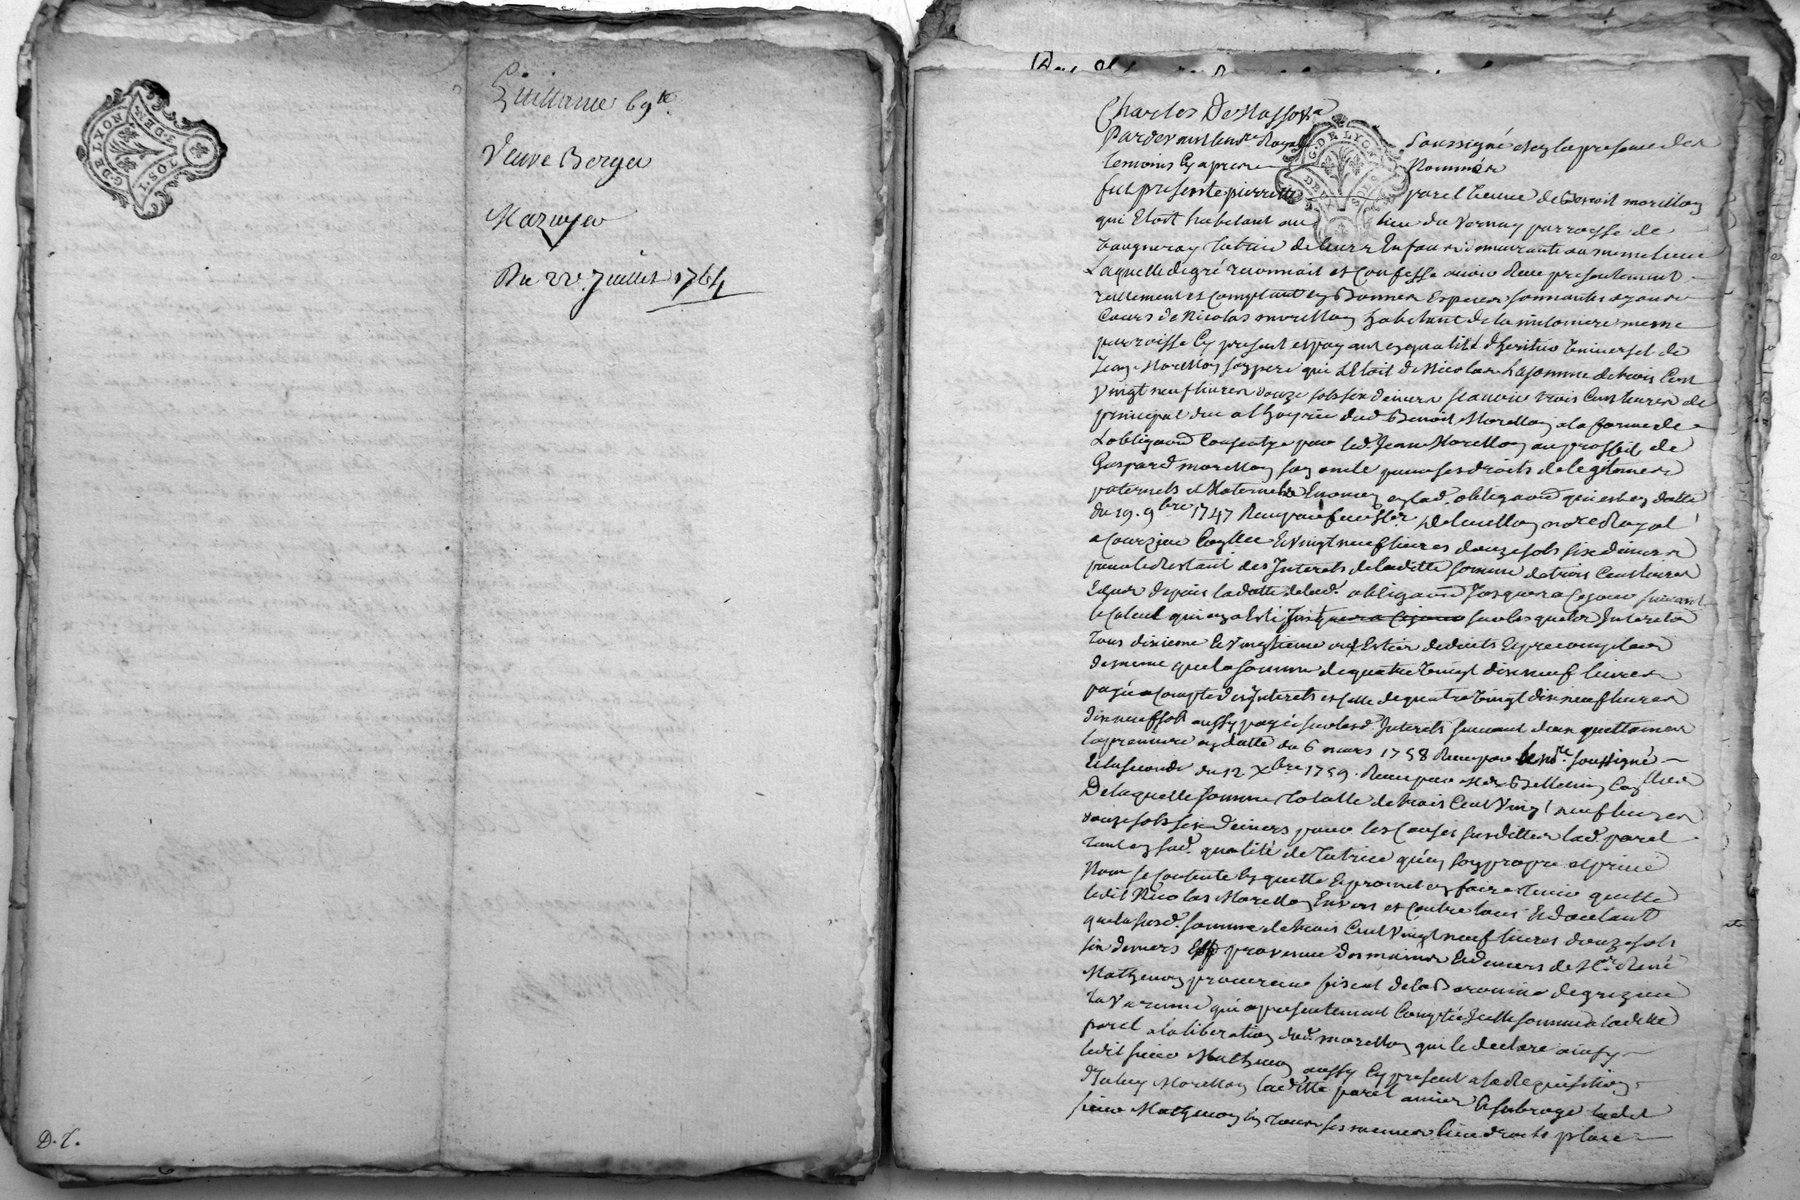 G. DE LYON
DEN.
Quittance 69#
Veuve Berger
Mazuyer
Du 22e. Juillet 1764
D. T.
Charles De Nasso
Pardevant le no.re Royal soussigné et en la presence des
temoins cy apres nommés
G. DE LYON
DEUX S. DES
fut presente pierrette parel veuve de Benoit morellon
qui etoit habitant au lieu du Vernay parroisse de
Vaugneray tutrice de leurs Enfans demeurante au meme lieu
Laquelle de gré reconnoit et Confesse avoir Receu presentement
reellement et Comptant en Bonnes Especes sonnantes ayant
Cours de Nicolas morellon habitant de la meme
parroisse cy present et payant en qualité d'heritier universel de
Jean Morellon son pere qui l'etoit de Nicolas La somme de trois Cent
Vingt neuf livres douze sols six deniers scavoir trois Cent livres de
principal due a l'hoyrie dud. Benoit Morellon a la forme de
L'obligaon Consentye par led. Jean Morellon au proffit de
Gaspard morellon son oncle pour ses droits de legitimes
paternels et Maternels Enoncez en lad. obligaon qui est en datte
du 19. 9bre 1747 Receu par no.re Royal
a Courzieu Et Vingt neuf livres douze sols six deniers
pour le Restant des Interets de laditte somme de trois Cent livres
Echus depuis la datte de lad. obligaon Jusques a Ce jour suivant
le Calcul qui en a été Jusques a Ce jour sur lesquels Interets
tous dixieme et Vingtieme ont Estés deduits et precomptes
de meme que la somme de quatre Vingt dix neuf livres
payée a Compte des Interets et Celle de quatre Vingt dix neuf livres
dix neuf sols aussy payée sur lesd. Interets suivant deux quittances
la premiere en datte du 6 mars 1758 Receu par le no.re soussigné
Et la seconde du 12 Xbre 1759. Receu par
De laquelle somme totalle de trois Cent Vingt neuf livres
douze sols six deniers pour les Causes susdittes lad. parel
tant en sad. qualité de tutrice qu'en son propre et privé
Nom se contente en quitte Et promet en faire tenir quitte
ledit Nicolas Morellon Envers et Contre tous Et d'autant
que la susd. somme de trois Cent Vingt neuf livres douze sols
six deniers est provenue des mains Et deniers de Sr. René
Mathevon procureur fiscal de la Baronnie de grezieu
la Varenne qui a presentement Comptée Icelle somme a laditte
parel a la liberation dud. morellon qui le declare ainsy
ledit sieur Mathevon aussy cy present a la Requisition
d'Iceluy Morellon laditte parel a mis et subrogé ledit
sieur Mathevon en tous ses memes lieu droits place